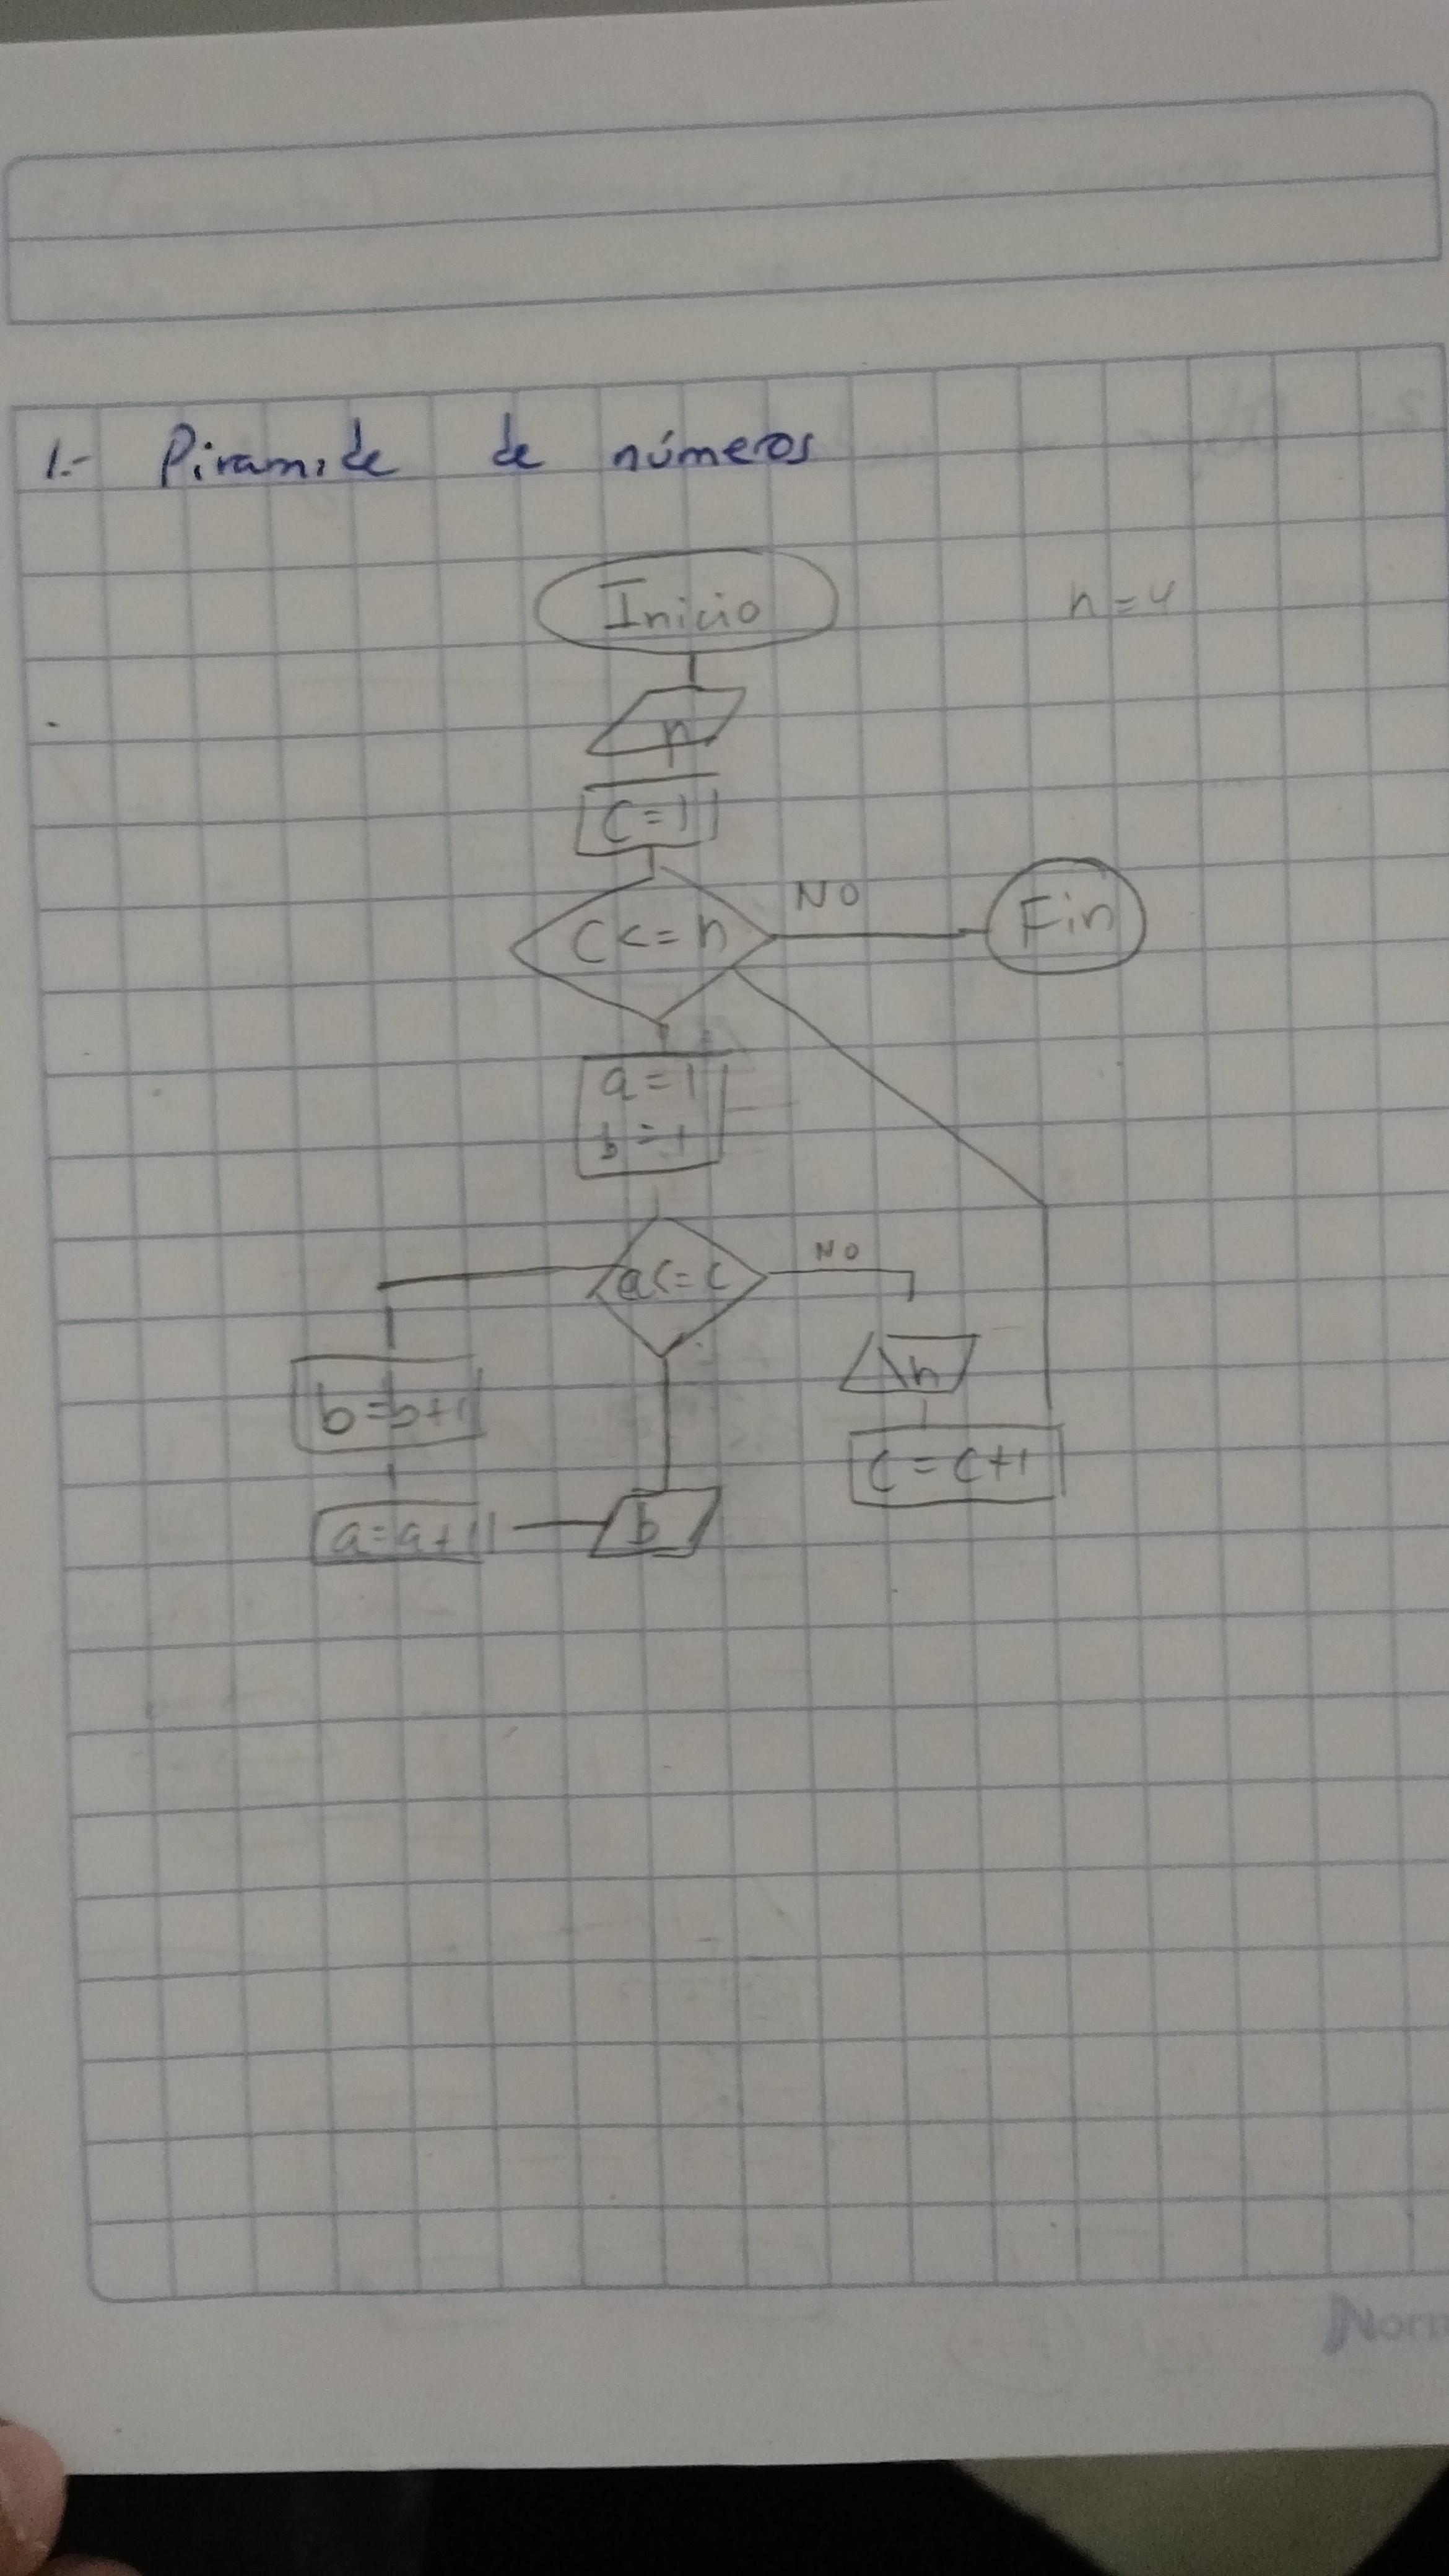 1.- Piramide de números
Inicio
n=4
n
C=1
C<=n
NO
Fin
a=1
b=1
a<=c
NO
\n
b=b+1
c=c+1
a=a+1
b
Norm